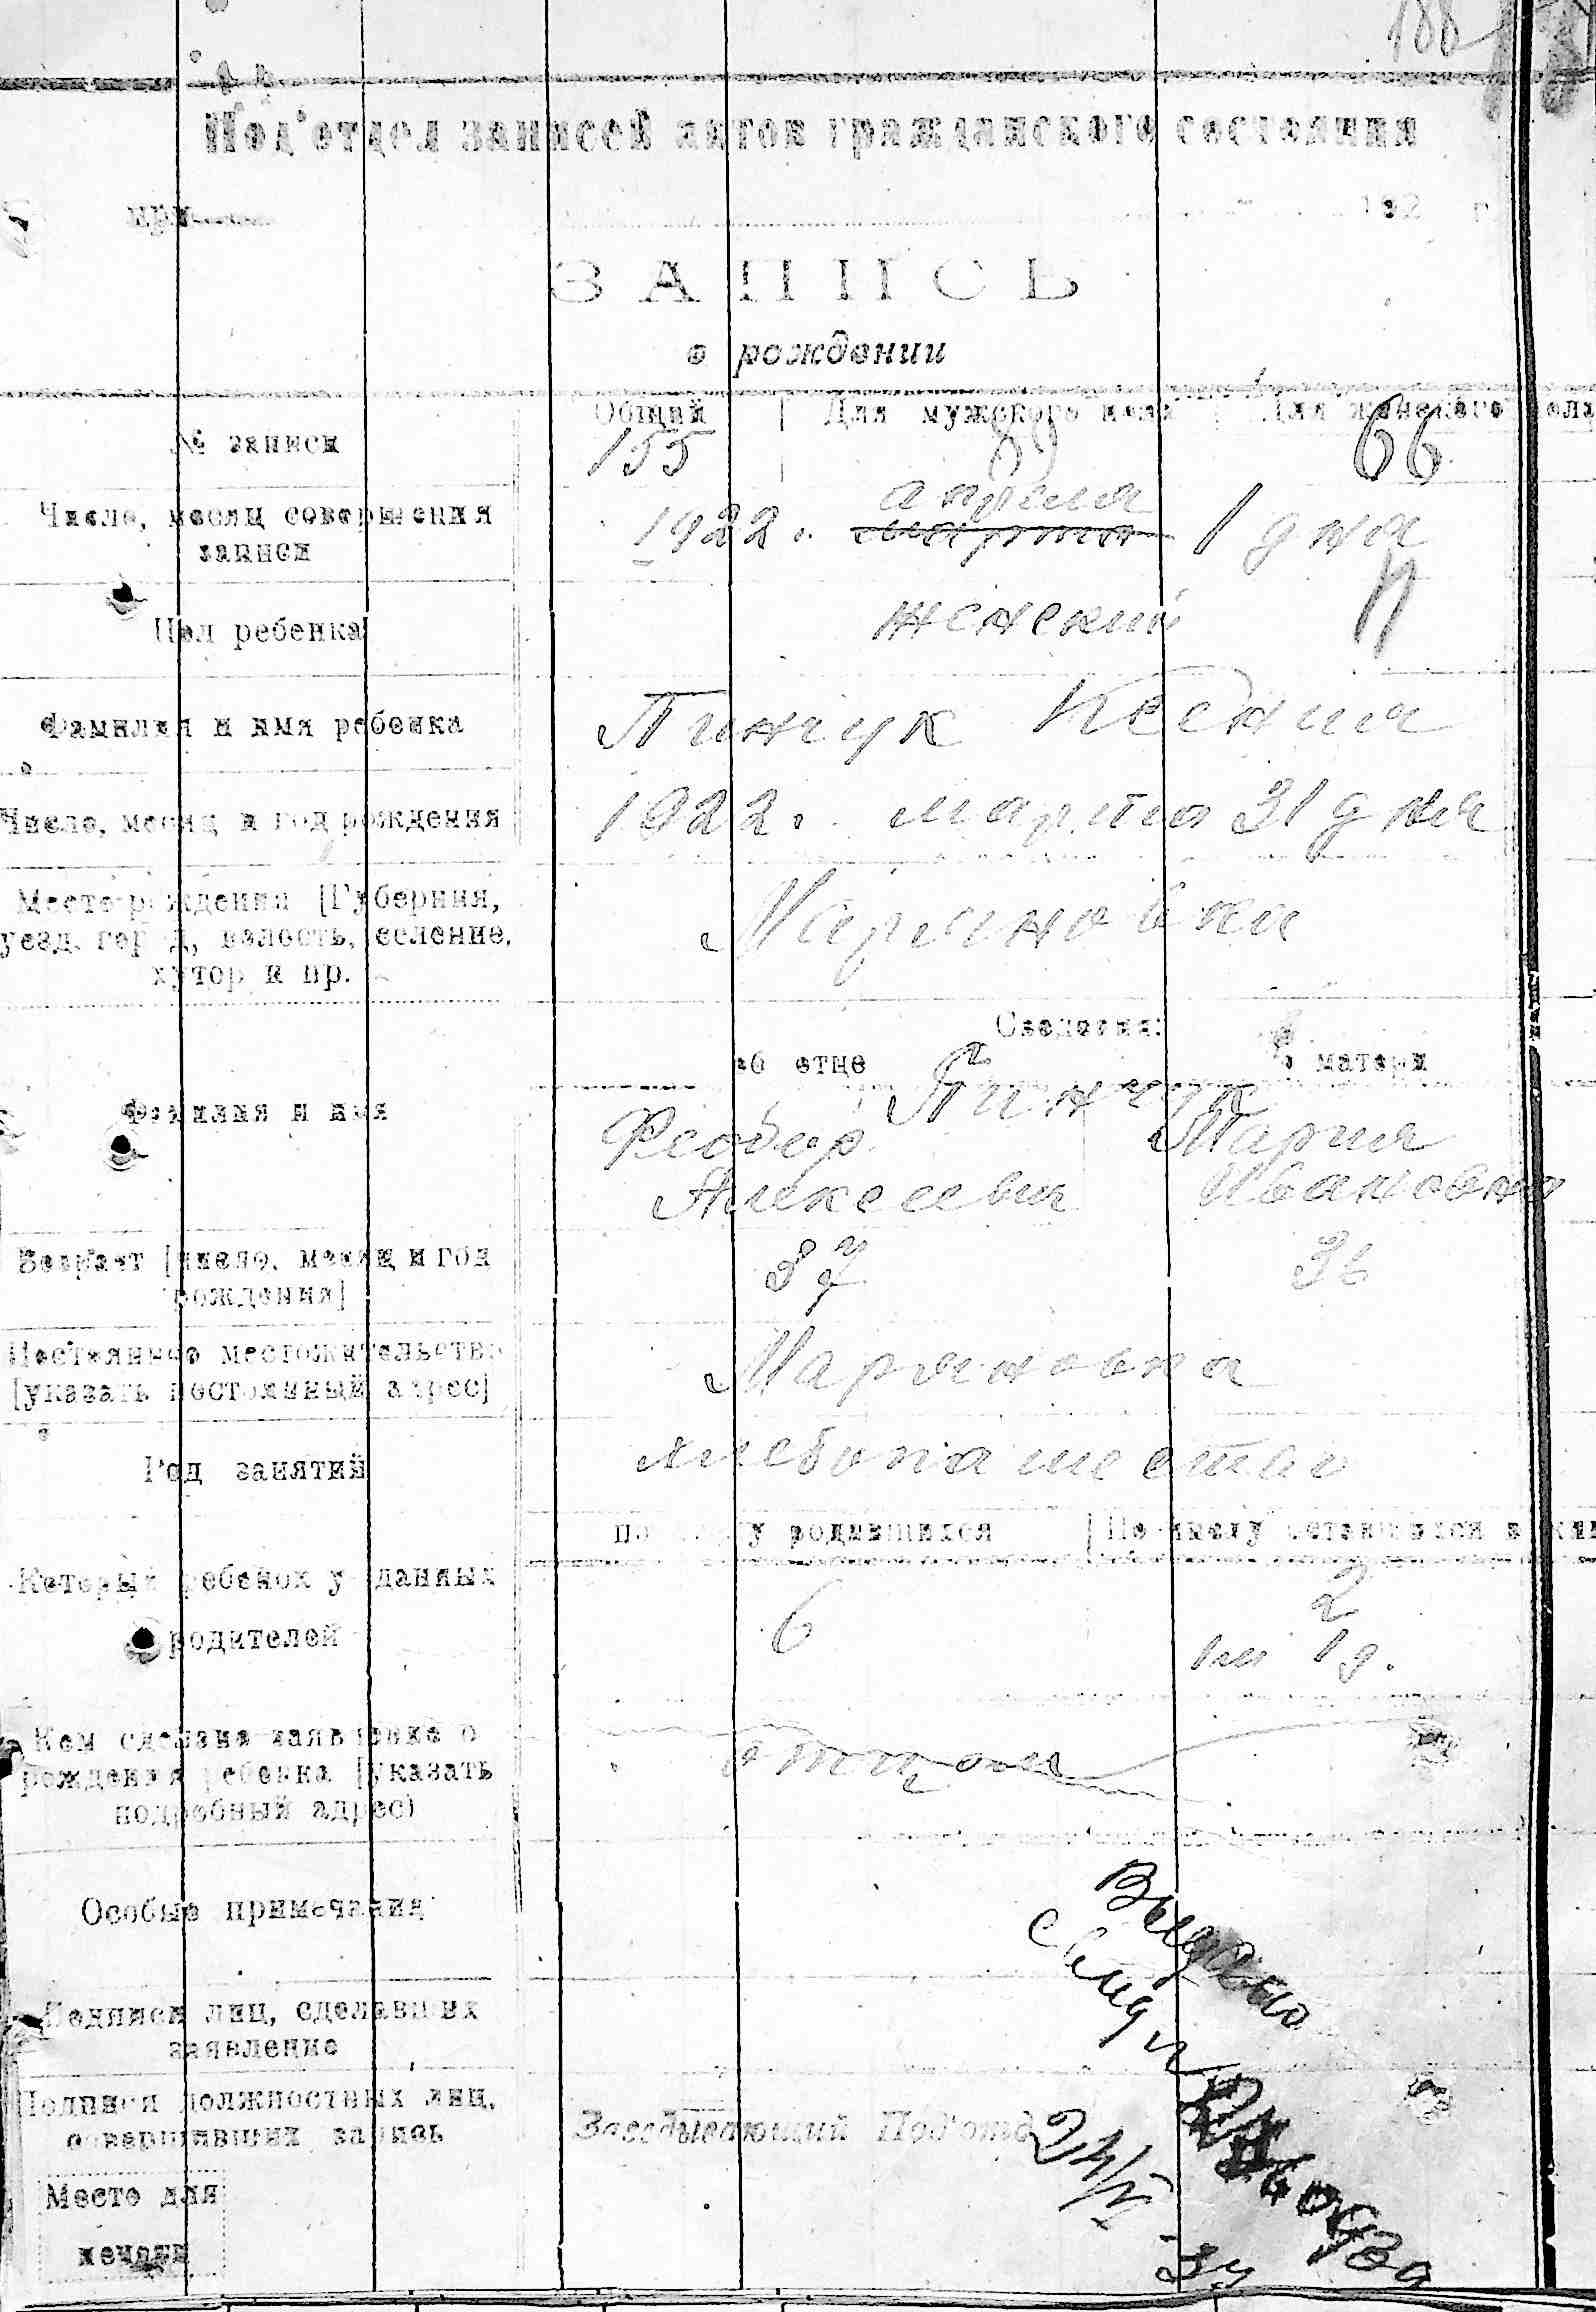 188
Под'отдел записей актов гражданского состояния
при
192 г.
ЗАПИСЬ
о рождении
№ записи
Общий | Для мужского пола | Для женского пола
155 89 66
Число, месяц совершения записи
апреля
1922. марта 1 дня
Пол ребенка
женский
Фамилия и имя ребенка
Пинчук Ксения
Число, месяц и год рождения
1922. марта 31 дня
Место рождения [Губерния,
уезд, город, волость, селение,
хутор и пр.
Марьяновка
Сведения:
об отце о матери
Фамилия и имя
Пинчук
Феодор Мария
Алексеевич Ивановна
Возраст [число, месяц и год
рождения]
37 36
Постоянное местожительство
[указать постоянный адрес]
Марьяновка
Род занятий
хлебопашество
По числу родившихся | По числу оставшихся в жив
Который ребенок у данных
родителей
6 2
1м 1д.
Кем сделано заявление о
рождении ребенка [указать
подробный адрес)
отцом
Особые примечания
Выдано
Подписи лиц, сделавших
заявление
Подписи должностных лиц,
совершивших запись
Заведывающий Под'отд
Место для
печати